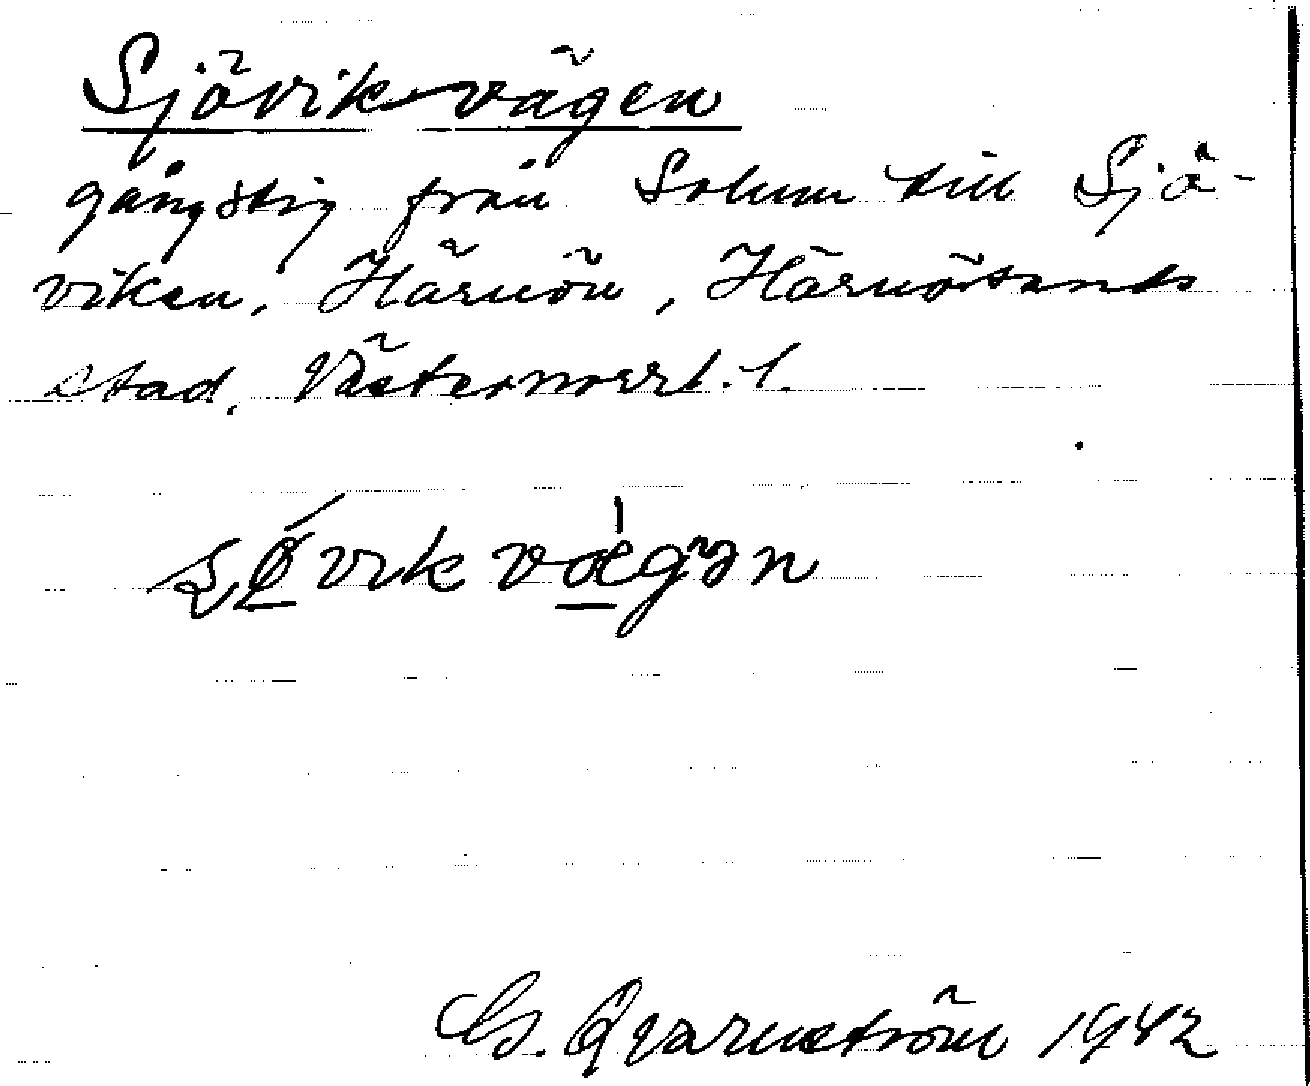 Sjövik-vägen
gångstig från Solum till Sjö-
viken, Härnön, Härnösands
stad, Västernorrl. l.
G. Qvarnström 1942